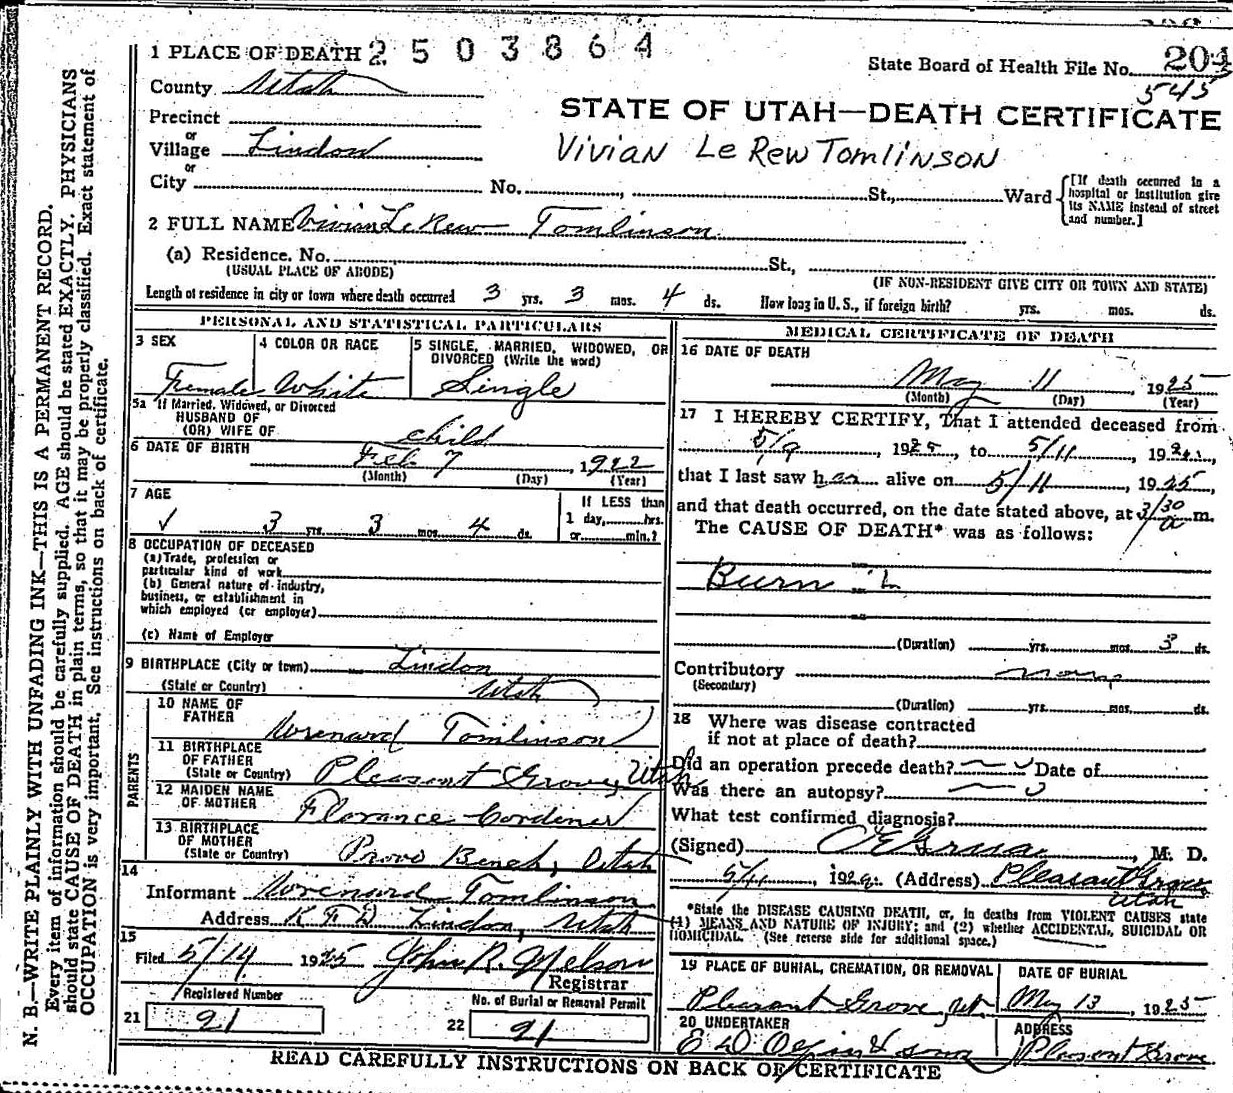 1 PLACE OF DEATH 2503864
State Board of Health File No. 204
545
County Utah
STATE OF UTAH—DEATH CERTIFICATE
Precinct
or
Village Lindon
Vivian Le Rew Tomlinson
or
City No. St., Ward
[If death occurred in a
hospital or institution give
its NAME instead of street
and number.]
2 FULL NAME Vivian Le Rew Tomlinson
(a) Residence. No. St.,
(USUAL PLACE OF ABODE) (IF NON-RESIDENT GIVE CITY OR TOWN AND STATE)
Length of residence in city or town where death occurred 3 yrs. 3 mos. 4 ds. How long in U.S., if foreign birth? yrs. mos. ds.
PERSONAL AND STATISTICAL PARTICULARS
3 SEX
Female
4 COLOR OR RACE
White
5 SINGLE, MARRIED, WIDOWED, OR
DIVORCED (Write the word)
Single
5a If Married, Widowed, or Divorced
HUSBAND OF
(OR) WIFE OF child
6 DATE OF BIRTH Feb 7, 1922
(Month) (Day) (Year)
7 AGE
3 yrs. 3 mos. 4 ds.
If LESS than
1 day, hrs.
or min.?
8 OCCUPATION OF DECEASED
(a) Trade, profession or
particular kind of work
(b) General nature of industry,
business, or establishment in
which employed (or employer)
(c) Name of Employer
9 BIRTHPLACE (City or town) Lindon
(State or Country) Utah
PARENTS
10 NAME OF
FATHER
Tomlinson
11 BIRTHPLACE
OF FATHER
(State or Country) Pleasant Grove, Utah
12 MAIDEN NAME
OF MOTHER Florance Cordener
13 BIRTHPLACE
OF MOTHER
(State or Country) Provo Bench, Utah
14
Informant Tomlinson
Address R F D Lindon, Utah
15
Filed 5/14 1925 John R. Nelson
Registrar
Registered Number
21 91
No. of Burial or Removal Permit
22 91
MEDICAL CERTIFICATE OF DEATH
16 DATE OF DEATH
May 11, 1925
(Month) (Day) (Year)
17 I HEREBY CERTIFY, That I attended deceased from
5/9, 1925, to 5/11, 192
that I last saw her alive on 5/11, 1925,
and that death occurred, on the date stated above, at 3/30 a m.
The CAUSE OF DEATH* was as follows:
Burn
(Duration) yrs. mos. 3 ds.
Contributory none
(Secondary)
(Duration) yrs. mos. ds.
18 Where was disease contracted
if not at place of death?
Did an operation precede death? Date of
Was there an autopsy?
What test confirmed diagnosis?
(Signed) , M. D.
5/11, 192 (Address) Pleasant Grove
Utah
*State the DISEASE CAUSING DEATH, or, in deaths from VIOLENT CAUSES state
(1) MEANS AND NATURE OF INJURY; and (2) whether ACCIDENTAL, SUICIDAL OR
HOMICIDAL. (See reverse side for additional space.)
19 PLACE OF BURIAL, CREMATION, OR REMOVAL
Pleasant Grove, Ut.
DATE OF BURIAL
May 13, 1925
20 UNDERTAKER
E D Olpin & sons
ADDRESS
Pleasant Grove
READ CAREFULLY INSTRUCTIONS ON BACK OF CERTIFICATE
N. B.—WRITE PLAINLY WITH UNFADING INK—THIS IS A PERMANENT RECORD.
Every item of information should be carefully supplied. AGE should be stated EXACTLY. PHYSICIANS
should state CAUSE OF DEATH in plain terms, so that it may be properly classified. Exact statement of
OCCUPATION is very important. See instructions on back of certificate.